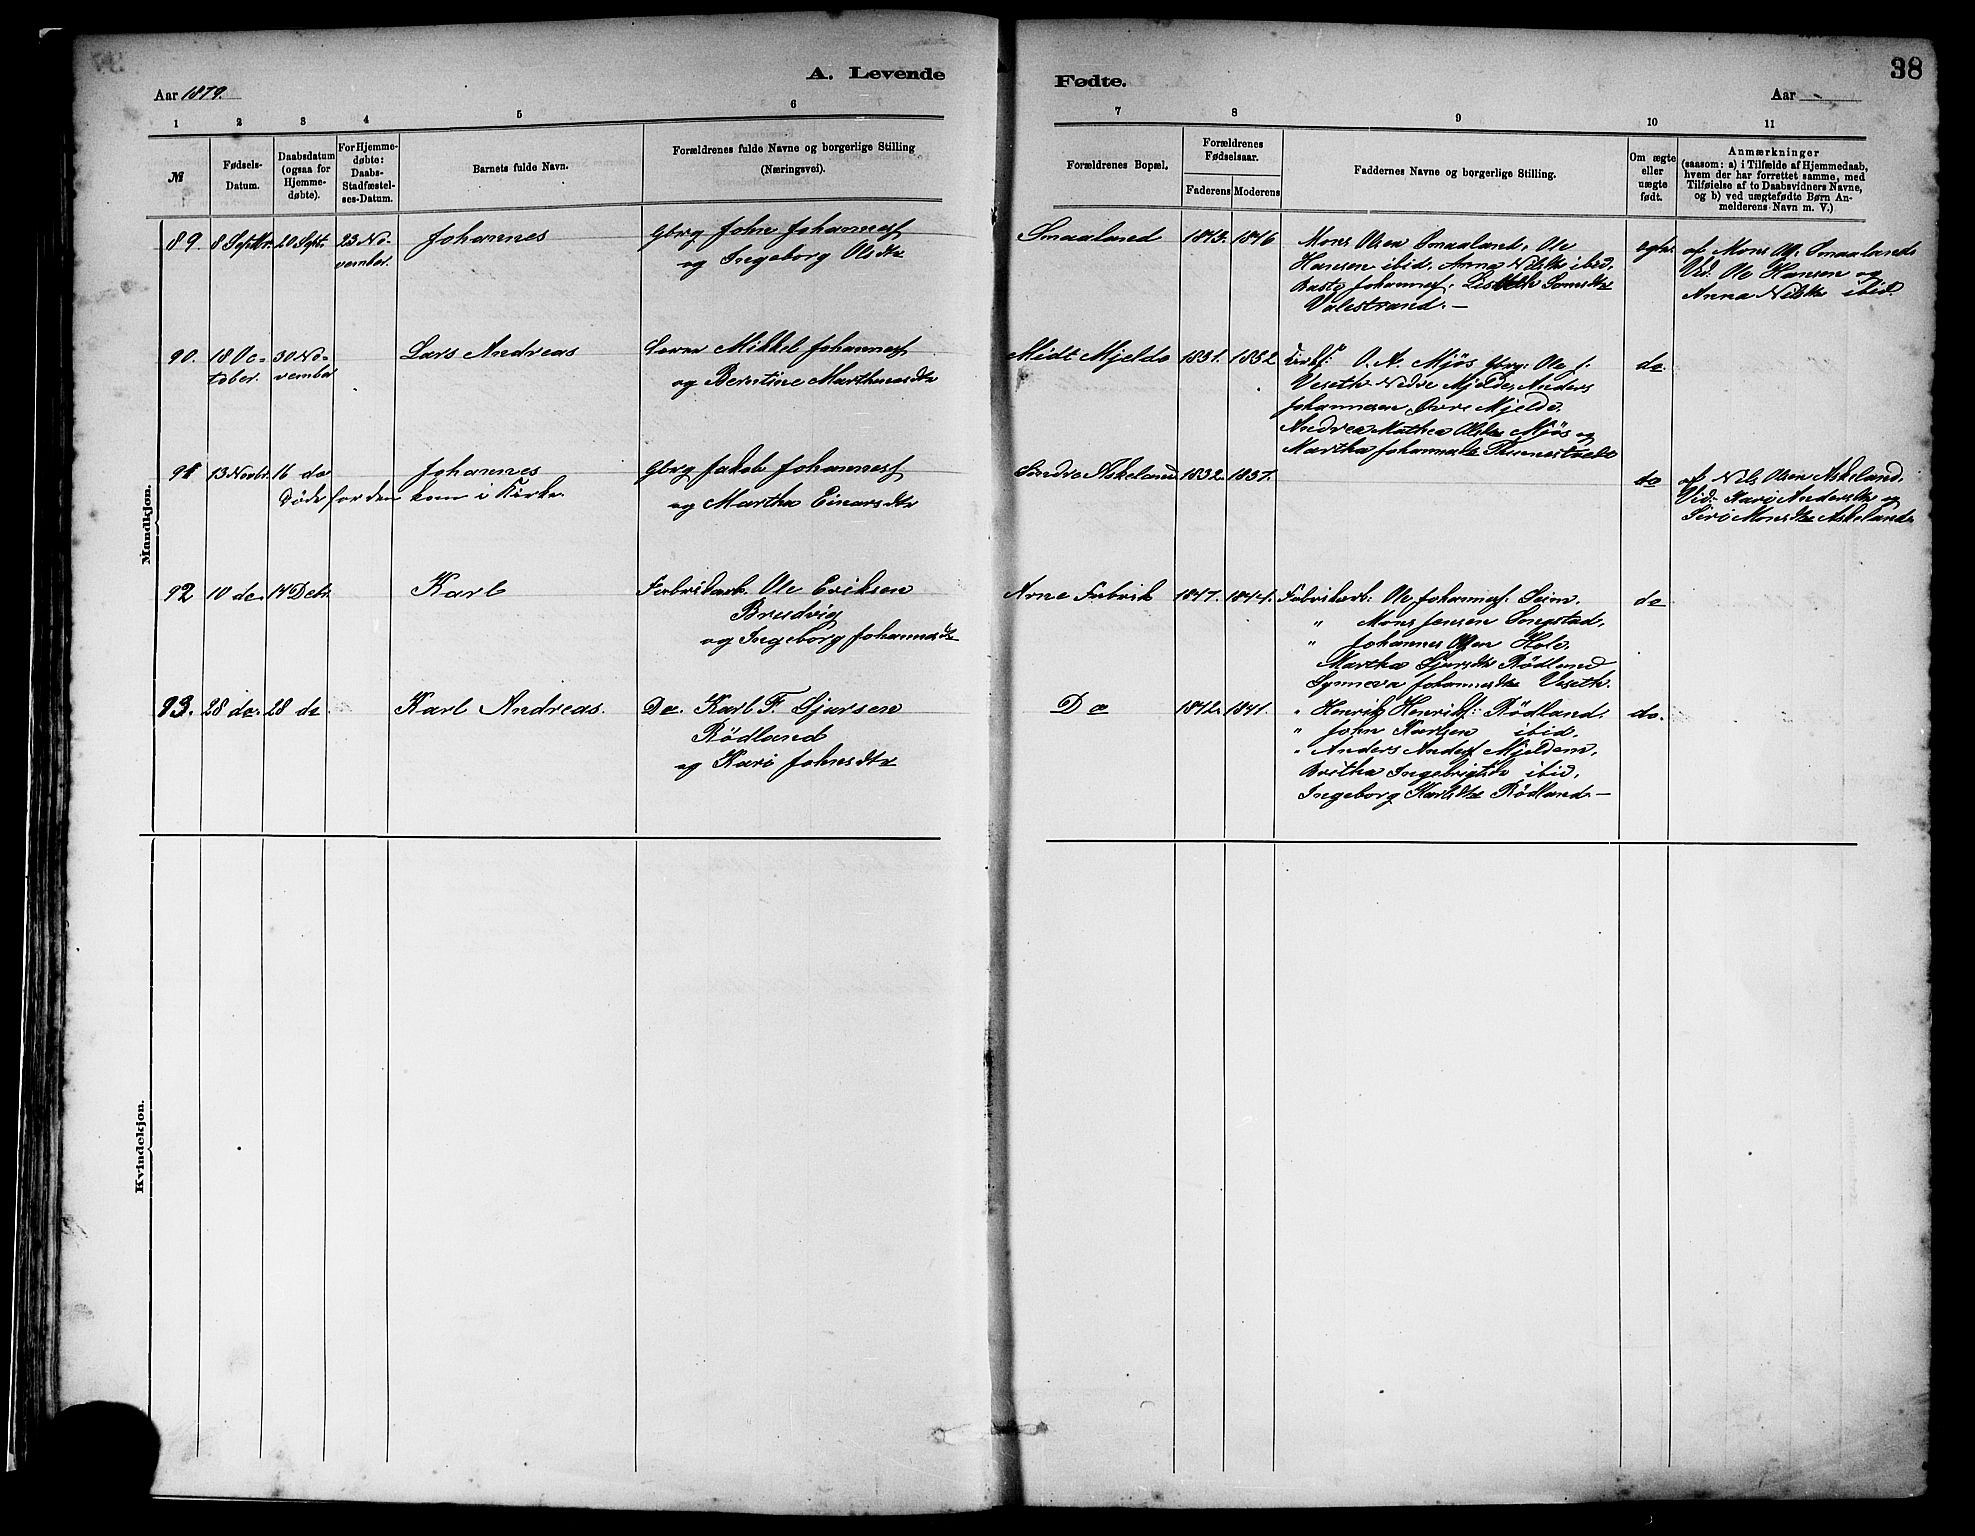 38
A. Levende Fødte.
Aar 1879. Aar
1 2 3 4 5 6 7 8 9 10 11
№
Fødsels-
Datum.
Daabsdatum
(ogsaa for
Hjemme-
døbte).
For Hjemme-
døbte:
Daabs-
Stadfæstel-
ses-Datum.
Barnets fulde Navn.
Forældrenes fulde Navne og borgerlige Stilling
(Næringsvei).
Forældrenes Bopæl.
Forældrenes
Fødselsaar.
Faderens Moderens
Faddernes Navne og borgerlige Stilling.
Om ægte
eller
uægte
født.
Anmærkninger
(saasom: a) i Tilfælde af Hjemmedaab,
hvem der har forrettet samme, med
Tilføielse af to Daabsvidners Navne,
og b) ved uægtefødte Børn An-
melderens Navn m. V.)
Mandkjøn.
89. 8 Septbr. 20 Sept. 23 No-
vember.
Johannes
Gbrg John Johannes
og Ingeborg Olsdtr
Smaaland 1843. 1846
Mons Olsen Smaaland, Ole
Hansen ibid, Anna Nilsdtr ibid,
Johannes. Lisbeth
Valestrand.—
egte.
af Mons Ols. Smaaland
Vid: Ole Hansen og
Anna Nilsdtr ibid.
90. 18 Oc-
tober.
30 No-
vember
Lars Andreas
Mikkel Johannes
og Berntine Marthinusdtr
Midt Mjelde 1831. 1852
O. A. Mjøs Gbrg: Ole J.
Veseth Nedre Mjelde, Anders
Johannesen Øvre Mjelde.
Andrea Mathea Olsdtr Mjøs og
Martha Johannesdtr
do
91 13 Novbr. 16 do
Johannes
Døde førden kom i Kirke.
Gbrg Jakob Johannes
og Martha Einarsdtr
Søndre Askeland 1832. 1837.
do
af Nils Olsen Askeland.
Vid: Kari Andersdtr og
Siri Monsdtr Askeland
92 10 do. 14 Debr.
Karl
Fabrikarb. Ole Eriksen
Brudvig
og Ingeborg Johannesdtr
Arne Fabrik 1847. 1844.
Fabrikarb: Ole Johannes. Seim.
" Mons Jensen Songstad,
" Johannes Olsen Hole.
Martha Sjursdtr Rödland
Synneva Johannesdtr Veseth.
do
93. 28 do. 28 do
Karl Andreas.
Do. Karl F. Sjursen
Rödland
og Kari Johnsdtr
Do 1842. 1841.
" Henrik Henriks. Rödland.
" John Karlsen ibid.
" Anders Anders Mjeldem,
Britha Ingebrigtsdtr ibid,
Ingeborg Karlsdtr Rödland.—
do.
Kvindekjøn.